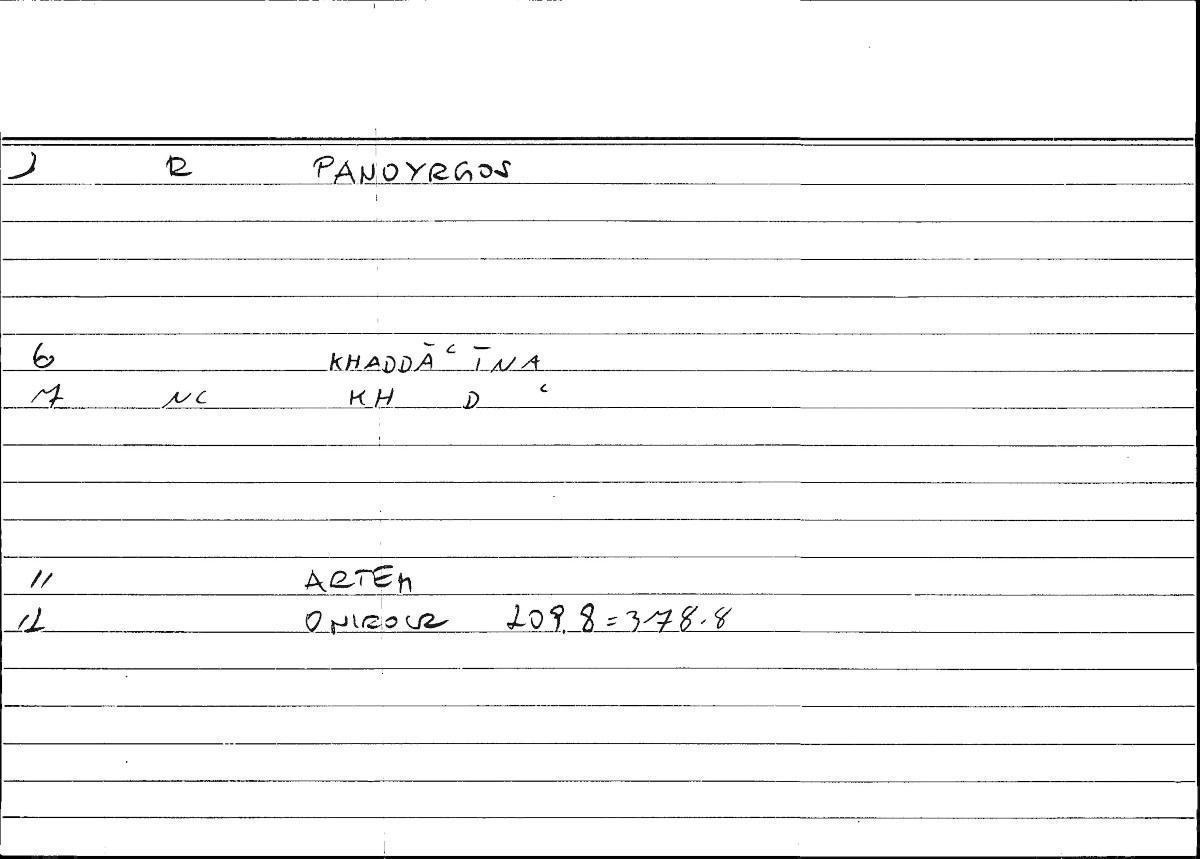 1 R PANOYRGOS
6 KHADDĀʿĪNA
7 NC KH D ʿ
11 ARTEM
12 ONIROCR 209.8=378.8